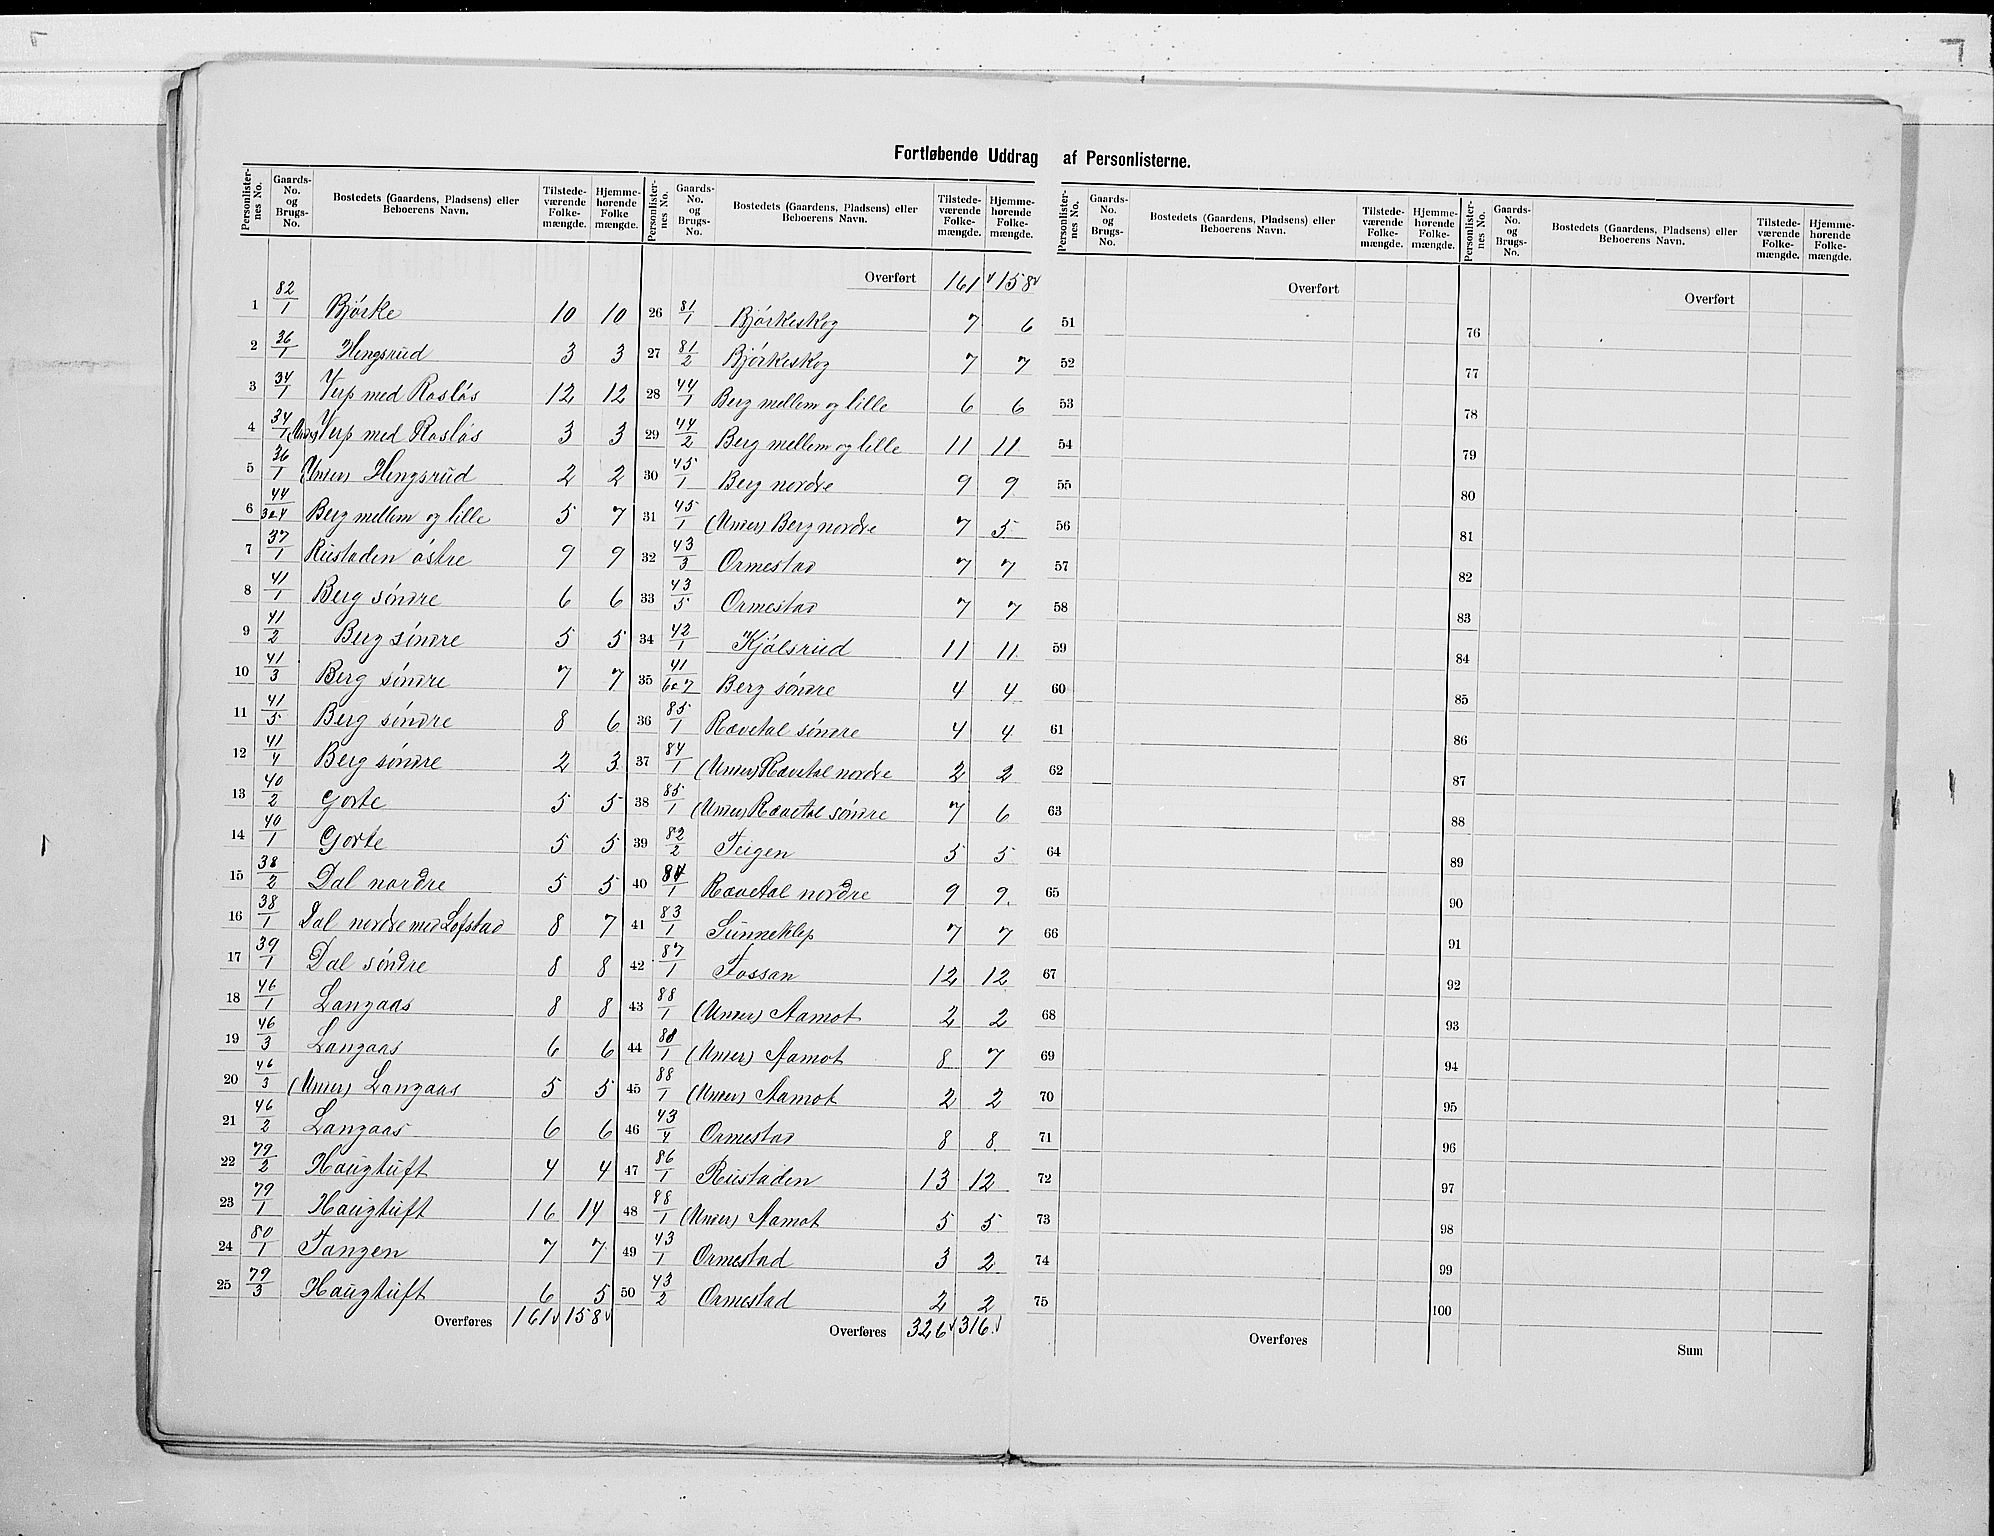 Fortløbende Uddrag af Personlisterne.
Personlister-nes No. | Gaards-No. og Brugs-No. | Bostedets (Gaardens, Pladsens) eller Beboerens Navn. | Tilstede-værende Folke-mængde. | Hjemme-hørende Folke mængde.
1 82/1 Bjørke 10 10
2 36/1 Hengsrud 3 3
3 34/1 Verp med Rosløs 12 12
4 34/1 (Under) Verp med Rosløs 3 3
5 36/1 (Under) Hengsrud 2 2
6 44/3o4 Berg mellem og lille 5 7
7 37/1 Rustaden østre 9 9
8 41/1 Berg søndre 6 6
9 41/2 Berg søndre 5 5
10 41/3 Berg søndre 7 7
11 41/5 Berg søndre 8 6
12 41/4 Berg søndre 2 3
13 40/2 Gorte 5 5
14 40/1 Gorte 5 5
15 38/2 Dal nordre 5 5
16 38/1 Dal nordre med Lofstad 8 7
17 39/1 Dal søndre 8 8
18 46/1 Langaas 8 8
19 46/3 Langaas 6 6
20 46/3 (Under) Langaas 5 5
21 46/2 Langaas 6 6
22 79/2 Haugtuft 4 4
23 79/1 Haugtuft 16 14
24 80/1 Tangen 7 7
25 79/3 Haugtuft 6 5
Overføres 161 158
Personlister-nes No. | Gaards-No. og Brugs-No. | Bostedets (Gaardens, Pladsens) eller Beboerens Navn. | Tilstede-værende Folke-mængde. | Hjemme-hørende Folke-mængde.
Overført 161 158
26 81/1 Bjørkeskog 7 6
27 81/2 Bjørkeskog 7 7
28 44/1 Berg mellem og lille 6 6
29 44/2 Berg mellem og lille 11 11
30 45/1 Berg nordre 9 9
31 45/1 (Under) Berg nordre 7 5
32 43/3 Ormestad 7 7
33 43/5 Ormestad 7 7
34 42/1 Kjølsrud 11 11
35 41/6o7 Berg søndre 4 4
36 85/1 Rævetal søndre 4 4
37 84/1 (Under) Rævetal nordre 2 2
38 85/1 (Under) Rævetal søndre 7 6
39 82/2 Teigen 5 5
40 84/1 Rævetal nordre 9 9
41 83/1 Sunneklep 7 7
42 87/1 Fossan 12 12
43 88/1 (Under) Aamot 2 2
44 88/1 (Under) Aamot 8 7
45 88/1 (Under) Aamot 2 2
46 43/4 Ormestad 8 8
47 86/1 Rustaden 13 12
48 88/1 (Under) Aamot 5 5
49 43/1 Ormestad 3 2
50 43/2 Ormestad 2 2
Overføres 326 316
Personlister-nes No. | Gaards-No. og Brugs-No. | Bostedets (Gaardens, Pladsens) eller Beboerens Navn. | Tilstede-værende Folke-mængde. | Hjemme-hørende Folke-mængde.
Overført
51
52
53
54
55
56
57
58
59
60
61
62
63
64
65
66
67
68
69
70
71
72
73
74
75
Overføres
Personlister-nes No. | Gaards-No. og Brugs-No. | Bostedets (Gaardens, Pladsens) eller Beboerens Navn. | Tilstede-værende Folke-mængde. | Hjemme-hørende Folke-mængde.
Overført
76
77
78
79
80
81
82
83
84
85
86
87
88
89
90
91
92
93
94
95
96
97
98
99
100
Sum